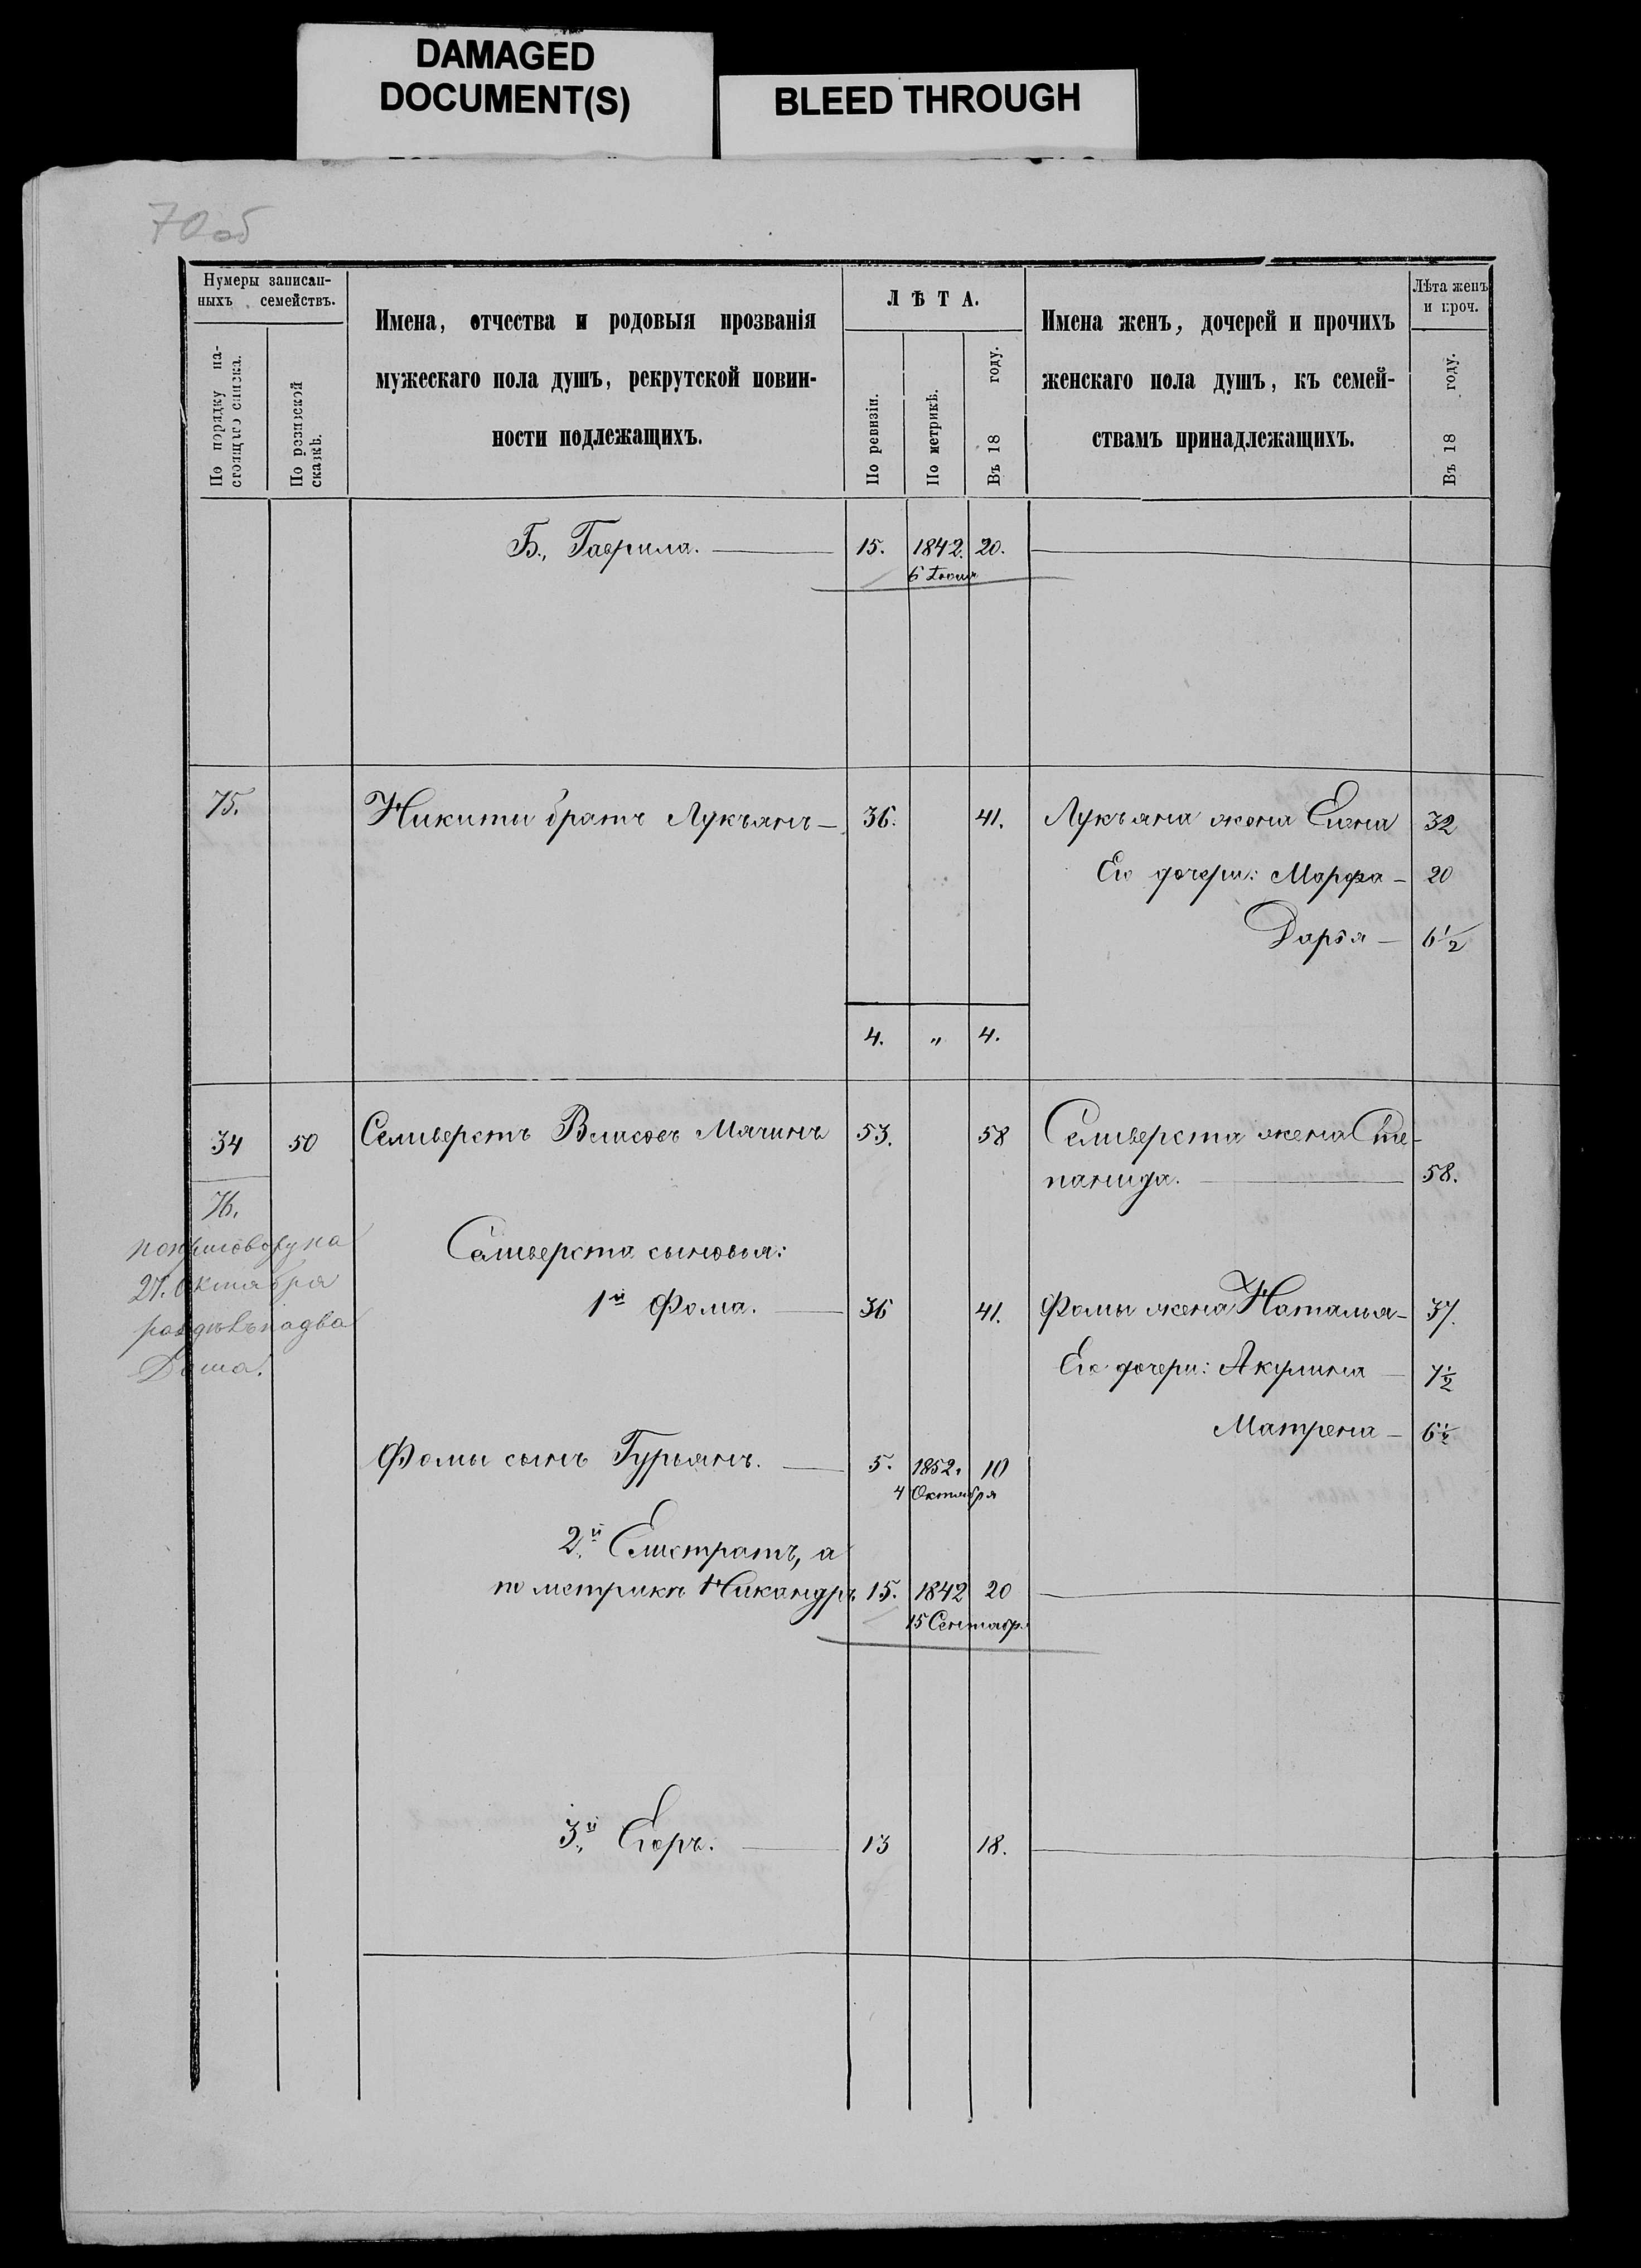 DAMAGED
DOCUMENT(S)
BLEED THROUGH
70об
Нумеры записан-
ныхъ семействъ.
По порядку на-
стоящаго списка.
По ревизской
сказкѣ.
Имена, отчества и родовыя прозванія
мужескаго пола душъ, рекрутской повин-
ности подлежащихъ.
ЛѢТА.
По ревизіи.
По метрикѣ.
Въ 18 году.
Имена женъ, дочерей и прочихъ
женскаго пола душъ, къ семей-
ствамъ принадлежащихъ.
Лѣта женъ
и проч.
Въ 18 году.
Б., Гаврила. 15. 1842. 20.
75. Никиты братъ Лукъянъ 36. 41. Лукъяна жена Елена 32
Его дочери: Марфа 20
Дарья 6½
4. „ 4.
34 50 Селиверстъ Власовъ Мячинъ 53. 58 Селиверста жена Сте-
панида. 58.
76.
по приговору на
27. Октября
раздѣлъ на два
Дома.
Селиверста сыновья:
1й Фома. 36 41. Фомы жена Наталья 37.
Его дочери: Акулина 7½
Матрена 6½
Фомы сынъ Гурьянъ. 5. 1852. 10
4 Октября
2й Елистратъ, а
по метрикѣ Никандръ 15. 1842 20
15 Сентябр.
3й Егоръ. 13 18.